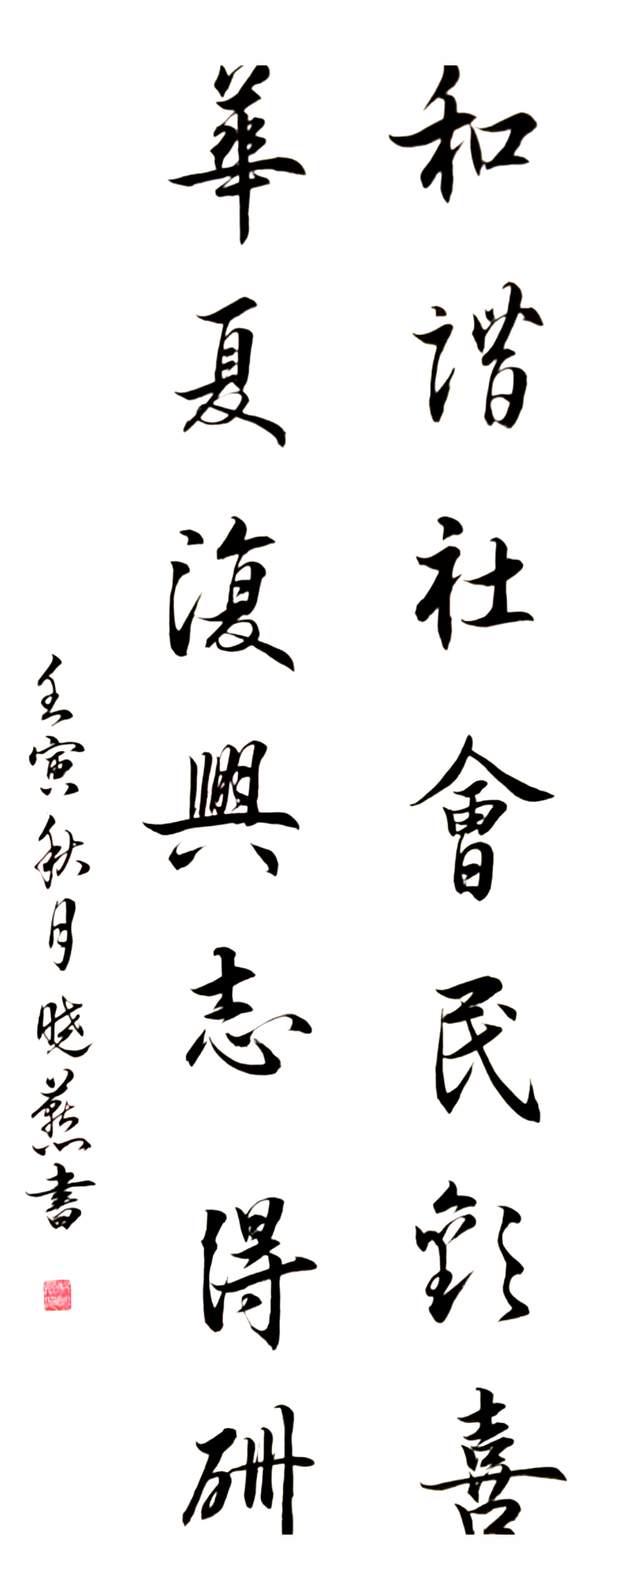 和諧社會民歡喜
華夏復興志得酬
壬寅秋月晓燕書